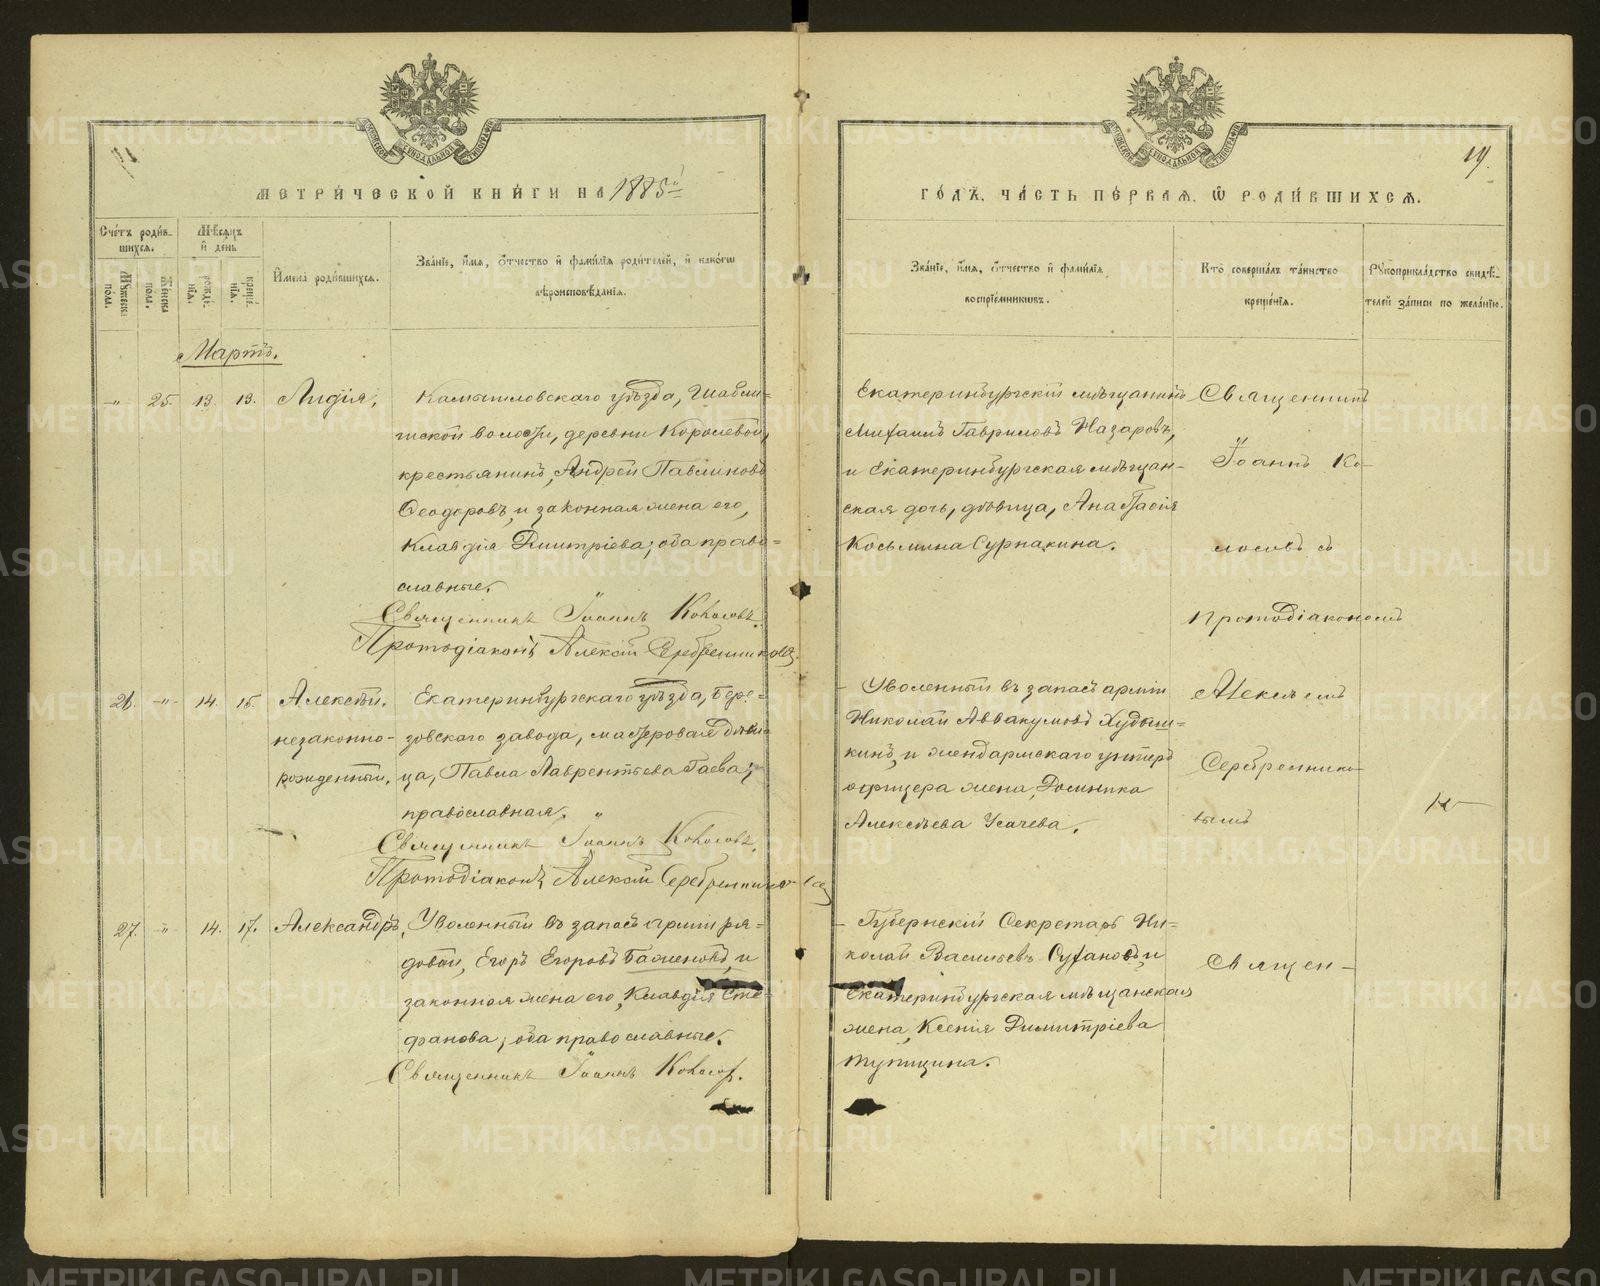 МЕТРИ́ЧЕСКОЙ КНИ́ГИ НА 1885й
Сче́тъ роди́в-
шихся.
Мѣ́сяцъ
и́ де́нь
Му́жеска по́ла.
Же́нска по́ла.
рожде́-
нїя.
креще́-
нїя.
И҆мена̀ роди́вшихся.
Зва́нїе, и҆́мя, ѻ҆́тчество и҆ фами́лїя роди́телей, и҆ како́гѡ
вѣроисповѣ́данїя.
Мартъ.
-"- 25. 13. 13. Лидія,
Камышловскаго уѣзда, Шабли-
шской волости, деревни Королевой,
крестьянинъ, Андрей Павлиновъ
Ѳеодоровъ, и законная жена его,
Клавдія Димитріева; оба право-
славные.
Священникъ Іоаннъ Колосовъ.
Протодіаконъ Алексій Серебренниковъ
26. -"- 14. 15. Алексѣй,
незаконно-
рожденный.
Екатеринбургскаго уѣзда, Бере-
зовскаго завода, мастеровая дѣви-
ца, Павла Лаврентьева Гаева;
православная. "
Священникъ Іоаннъ Колосовъ.
Протодіаконъ Алексій Серебренниковъ
27. -"- 14. 17. Александръ,
Уволенный въ запасъ арміи ря-
довой, Егоръ Егоровъ Баженовъ, и
законная жена его, Клавдія Сте-
фанова; оба православные.
Священникъ Іоаннъ Колосов.
19.
ГО́ДЪ, ЧА́СТЬ ПЕ́РВАЯ, Ѡ҆ РОДИ́ВШИХСЯ.
Зва́нїе, и҆́мя, ѻ҆́тчество и҆ фами́лїя
воспрїе́мникѡвъ.
Кто̀ соверша́лъ та́инство
креще́нїя.
Рꙋкоприкла́дство свидѣ́-
телей за́писи по жела́нїю.
Екатеринбургскій мѣщанинъ
Михаилъ Гавриловъ Назаровъ,
и Екатеринбургская мѣщан-
ская дочь, дѣвица, Анастасія
Косьмина Сурнакина.
Священникъ
Іоаннъ Ко-
лосовъ съ
протодіакономъ
Уволенный въ запасъ арміи
Николай Аввакумовъ Худыш-
кинъ, и жендармскаго унтеръ
офицера жена, Домника
Алексѣева Усачева.
Алексѣемъ
Серебреннико-
вымъ
Губернскій Секретарь Ни-
колай Васильевъ Сухановъ, и
Екатеринбургская мѣщанская
жена, Ксенія Димитріева
Тупицина.
Священ-